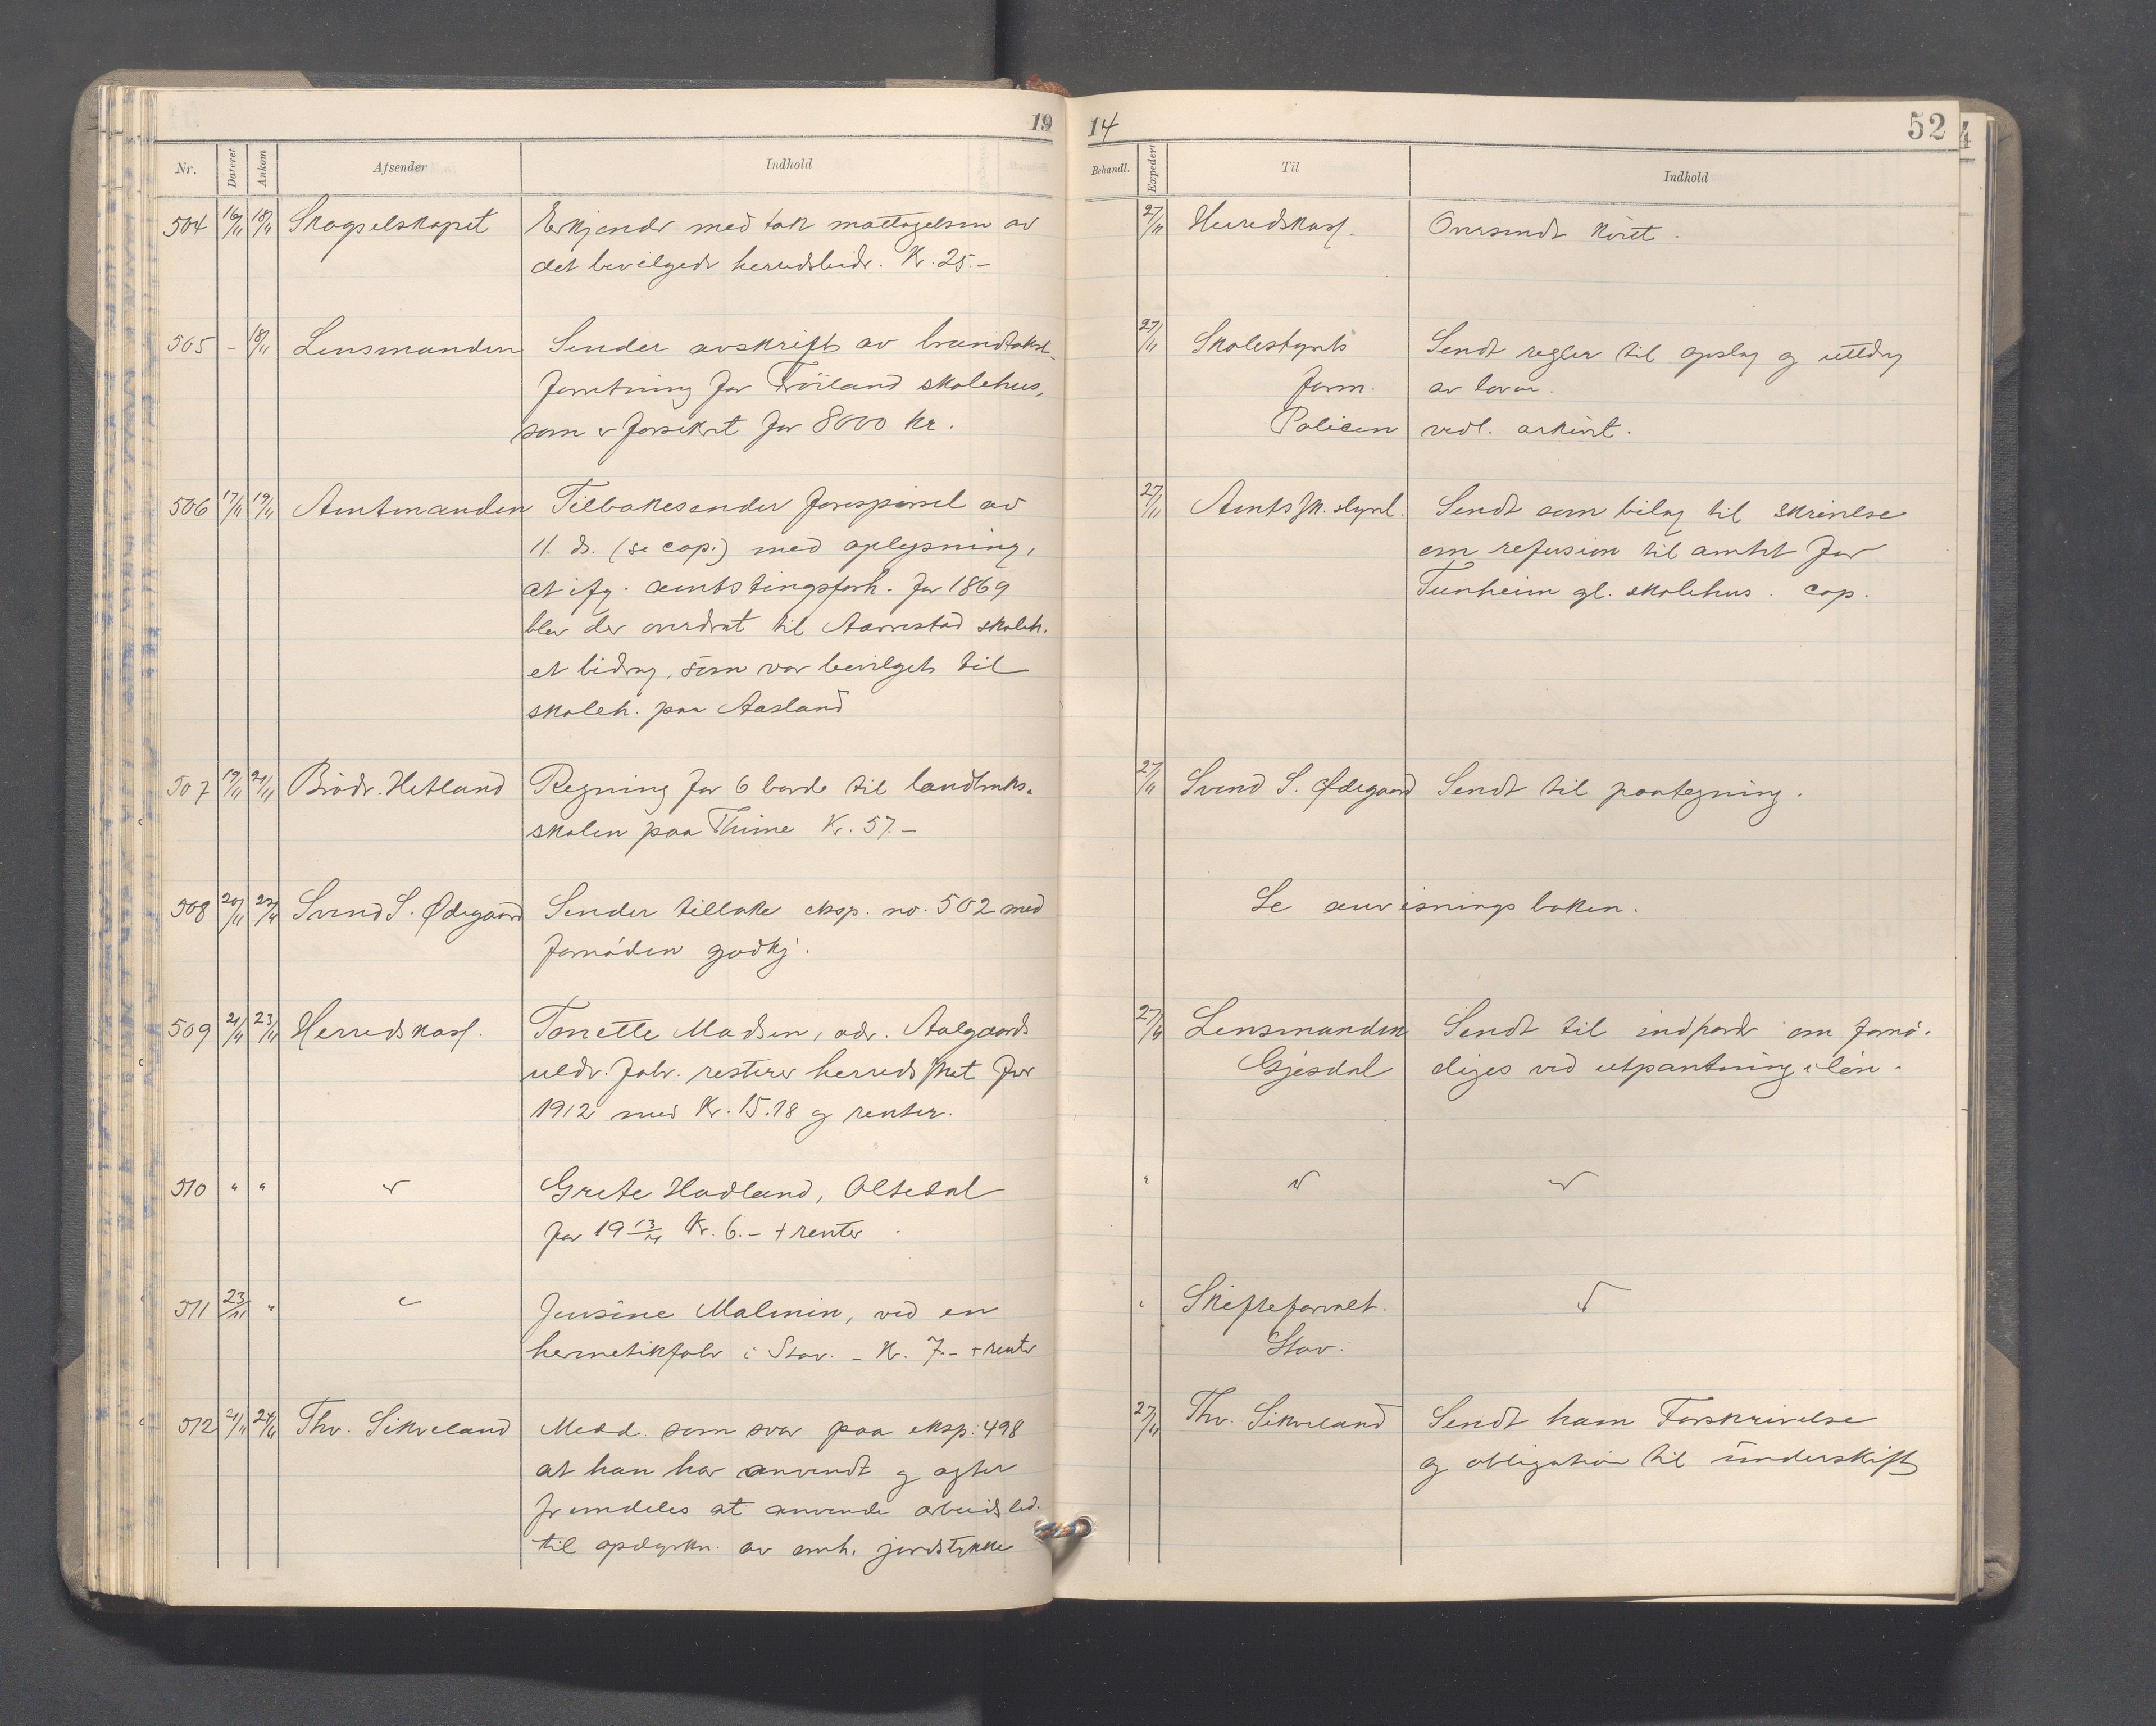 19 14 52
Nr. Dateret Ankom Afsender Indhold Behandl. Expedert Til Indhold
504 16/11 18/11 Skogselskapet Erkjender med tak mottagelsen av
det bevilgede herredsbidr. Kr. 25.-
27/11 Herredskass. Oversendt kvit.
505 - 18/11 Lensmanden Sender avskrift av brandtakst-
forretning for Fröiland skolehus,
som er forsikret for 8000 kr.
27/11 Skolestyrets Sendt regler til opslag og utdrag
form. av loven.
Policen vedl. arkivet.
506 17/11 19/11 Amtmanden Tilbakesender forespörsel av
11. ds. (se cop.) med oplysning,
at ifg. amtstingsforh. for 1869
blev der overdrat til Aarrestad skoleh.
et bidrag, som var bevilget til
skoleh. paa Aasland
27/11 Amtssk.styret. Sendt som bilag til skrivelse
om refusion til amtet for
Tunheim gl. skolehus. cop.
507 19/11 21/11 Brödr. Hetland Regning for 6 borde til landbruks-
skolen paa Thime Kr. 57.-
27/11 Svend S. Ødegaard Sendt til paategning.
508 20/11 22/11 Svend S. Ødegaard Sender tilbake eksp. no. 502 med
fornöden godkj.
Se anvisningsboken.
509 21/11 23/11 Herredskass. Tonette Madsen, adr. Aalgaards
uldv. fabr. resterer herredsskat for
1912 med Kr. 15.18 og renter.
27/11 Lensmanden Sendt til indfordr om fornö-
Gjesdal diges ved utpantning i lön.
510 " " " Grete Hadland, Oltedal
for 19 13/14 Kr. 6.- + renter
" " "
511 23/11 " " Jensine Malmin, ved en
hermetikfabr i Stav. - Kr. 7.- + renter
" Skifteforvalt. "
Stav.
512 21/11 24/11 Thv. Sikveland Medd. som svar paa eksp. 498
at han har anvendt og agter
fremdeles at anvende arbeidsled.
til opdyrkn. av omh. jordstykke
27/11 Thv. Sikveland Sendt ham Forskrivelse
og obligation til underskift